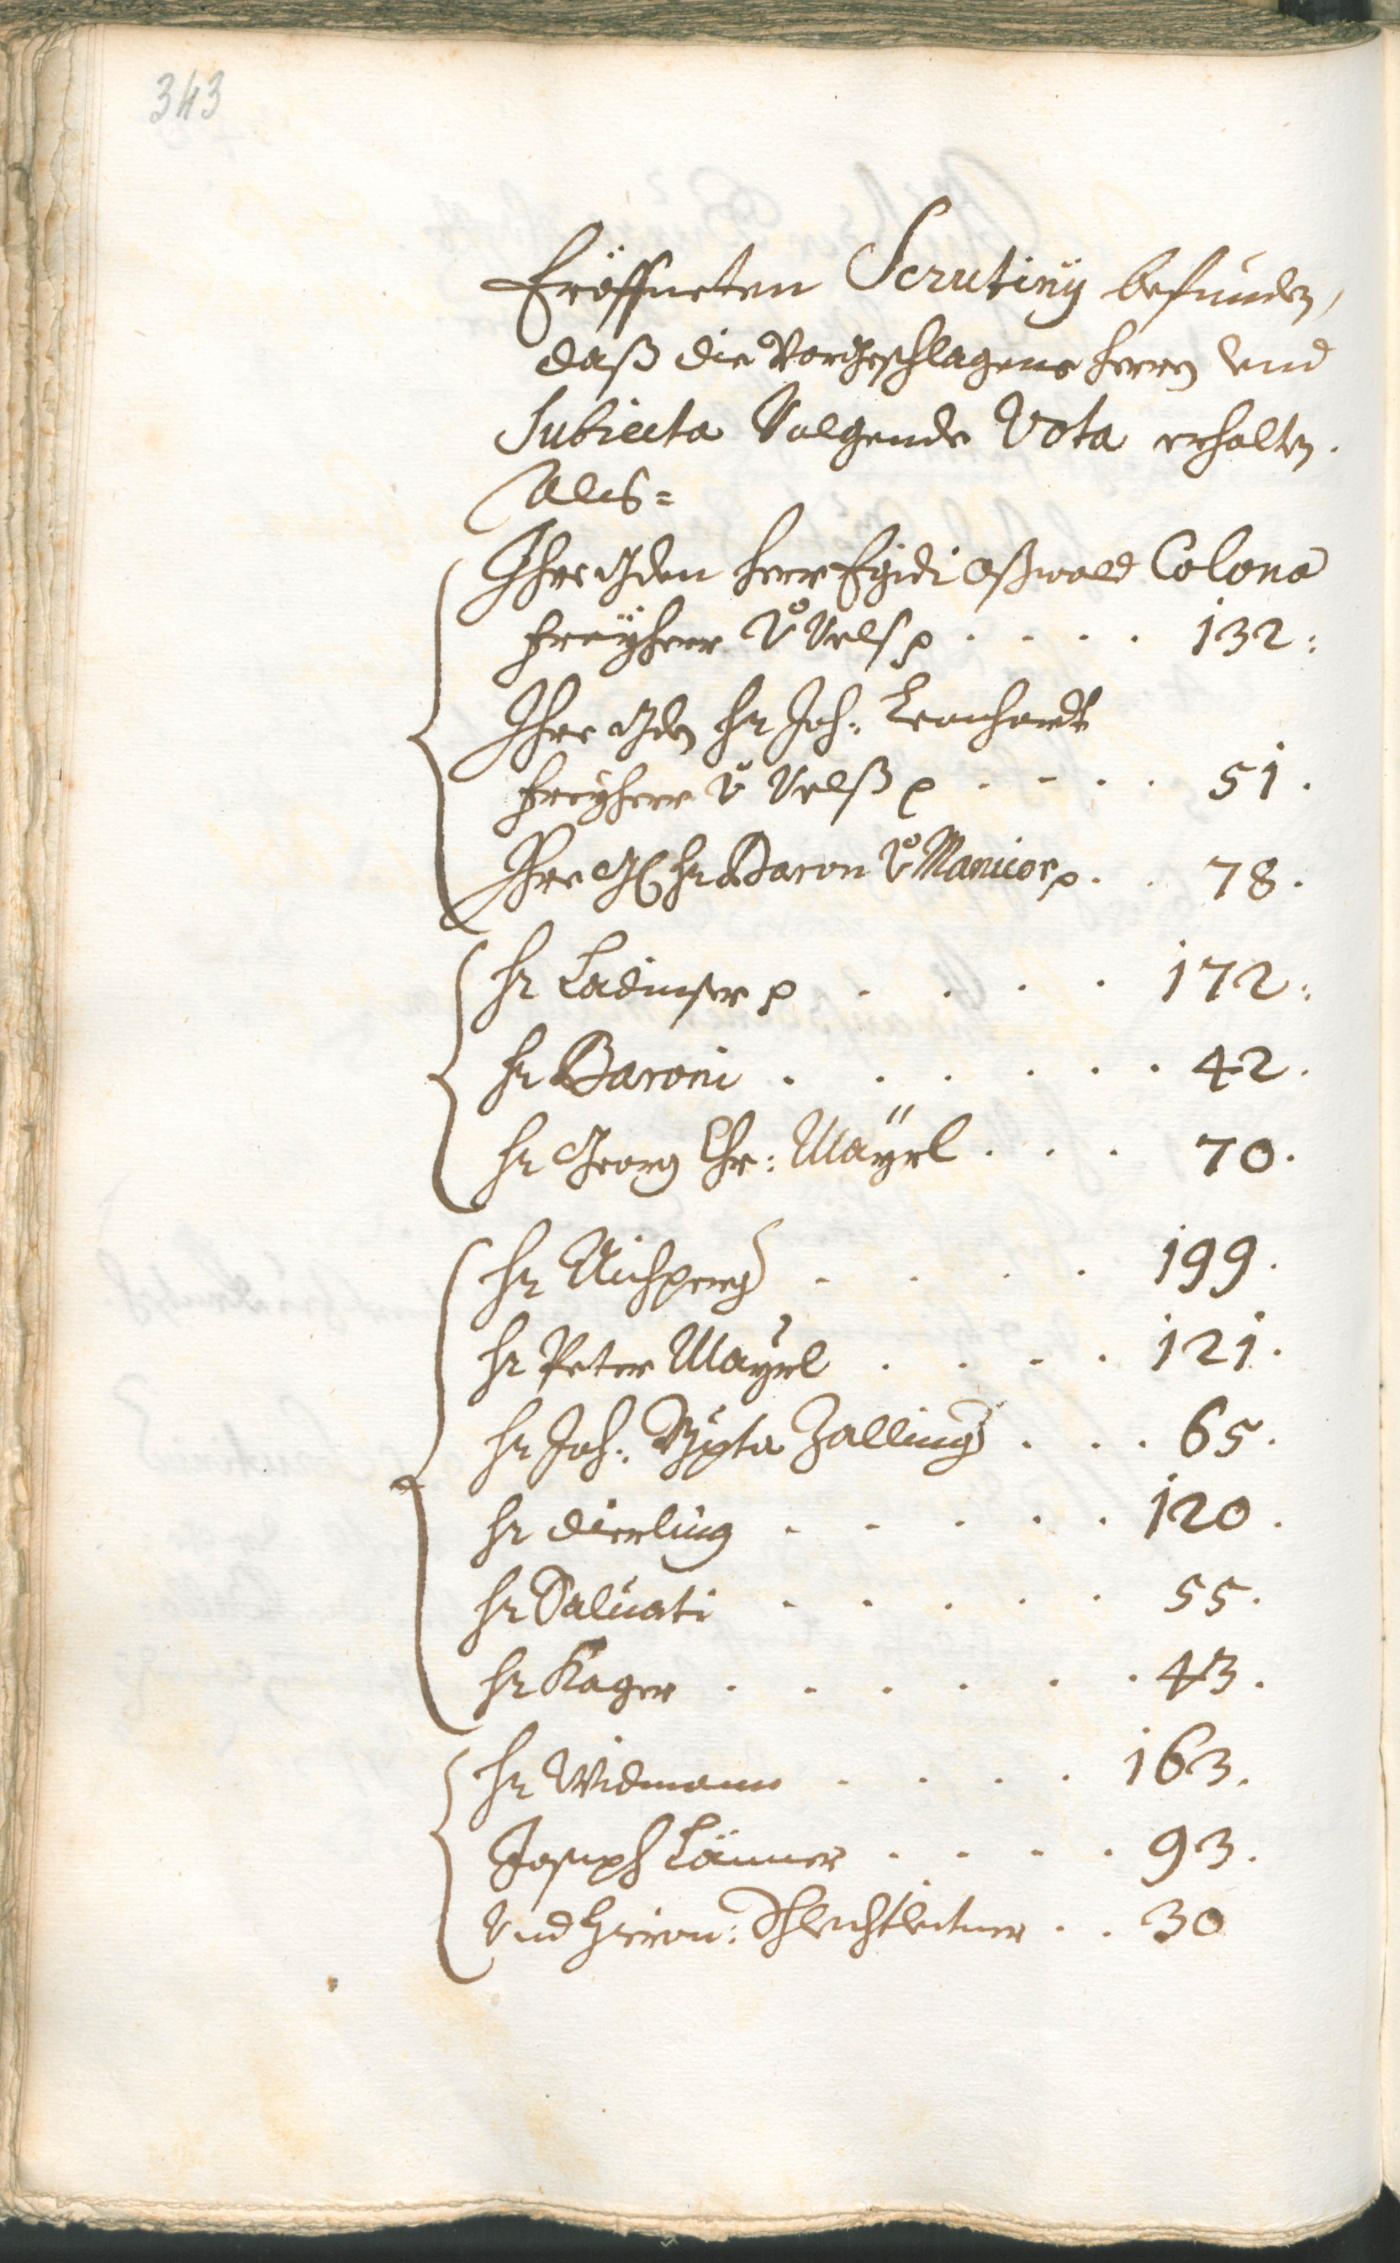 343
Eröffneten Scrutinÿ befunden,
daß die Vorgeschlagene herrn vnd
Subiecta Volgende Vota erhalten.
Als=
Ihre Gden herr Egidi Oßwald Colona
Freÿherr v Vels p . . . . 132:
Ihre Gden hr Joh: Leonhardt
Freÿherr v Velß p . . . . 51.
Ihre G hr Baron v Manicor p . . 78.
hr Ladinser p . . . . 172:
hr Baroni . . . . . . 42.
hr Georg Chr: Maÿrl . . . 70.
hr Aichperg . . . . 199.
hr Peter Mayrl . . . . 121.
hr Joh: Bpta Zalling . . . 65.
hr dierling . . . . . 120.
hr Saluati . . . . . 55.
hr Kager . . . . . . 43.
hr Widmann . . . . 163.
Joseph Länner . . . . 93.
Vnd Hieron: Schlechtleitner . . 30